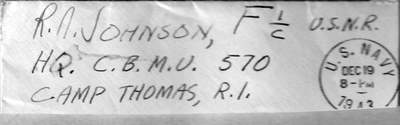 R.A. JOHNSON, F 1/C U.S.N.R.
HQ. C.B.M.U. 570
CAMP THOMAS, R.I.
U.S. NAVY
DEC 19
8-PM
1943